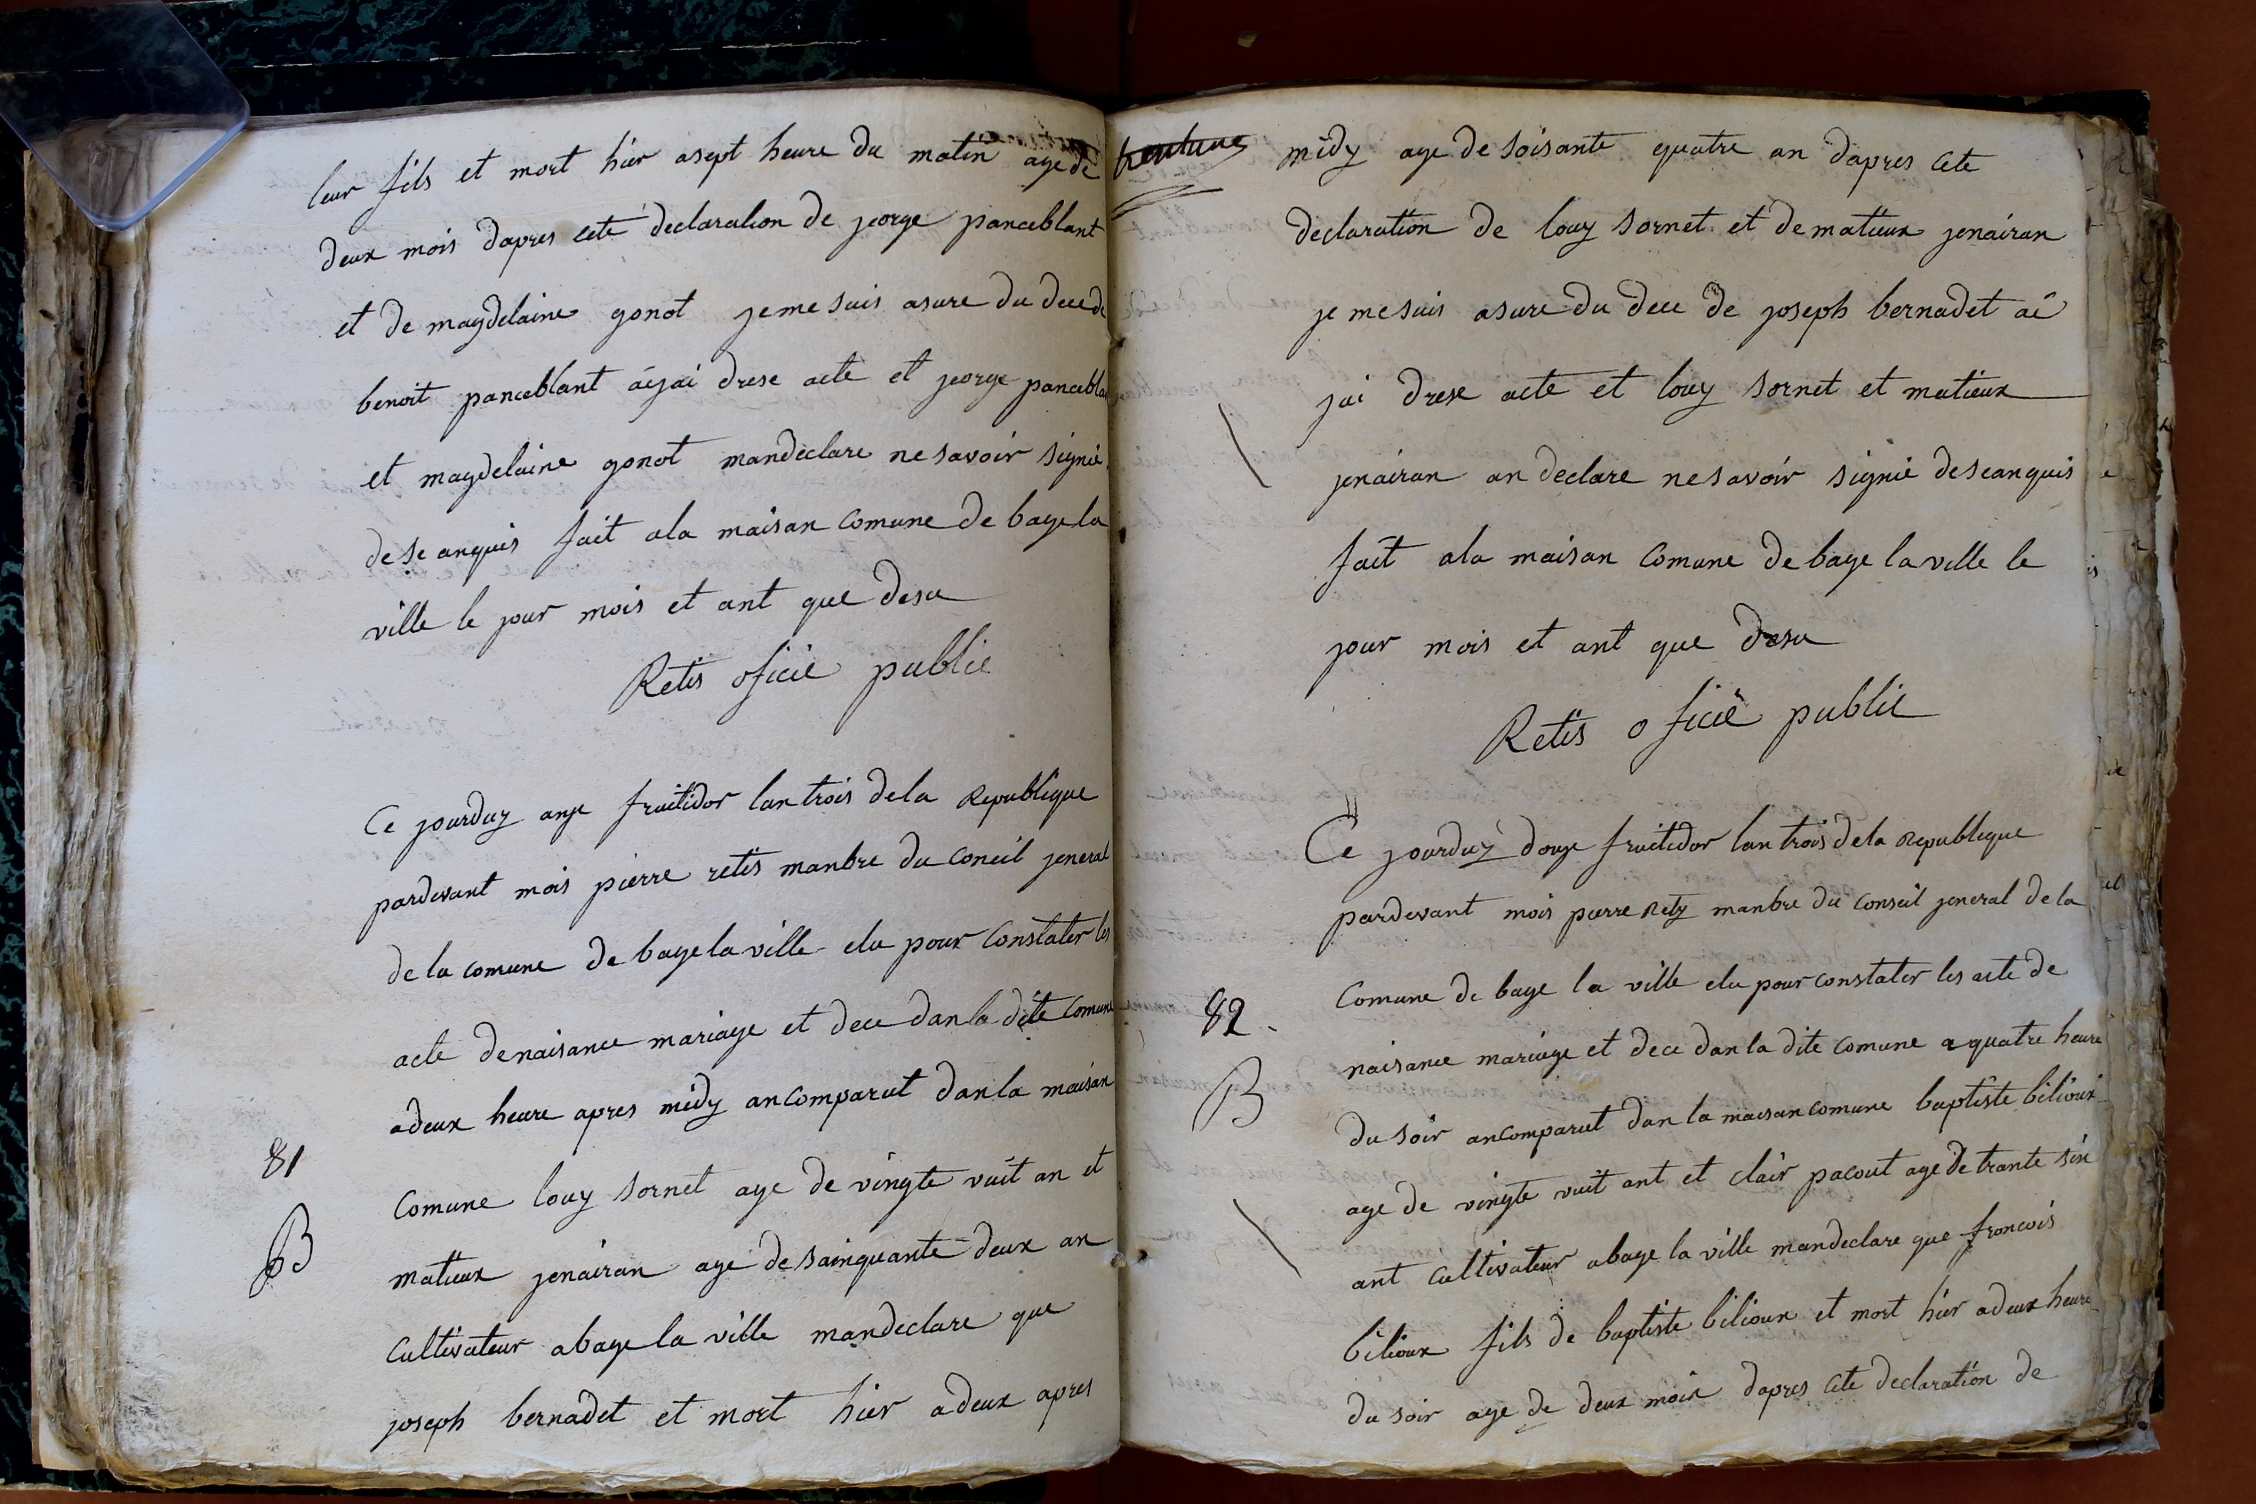 leur fils et mort hier asept heure du matin age de
deux mois dapres cete declaration de jeorge panceblant
et de magdelaine gonot je me suis asure du dece de
benoit panceblant ai jai drese acte et jeorge pancebla
et magdelaine gonot mandeclare ne savoir signié
de se anquis fait ala maisan comune de bage la
ville le jour mois et ant que desu
Retis oficié public
Ce jourduy onze fruitidor lan trois dela Republique
pardevant mois pierre retis manbre du coneil jeneral
de la comune de bage la ville elu pour constater les
acte de naisance mariage et dece dan la dite comune
adeux heure apres midy ancomparut dan la maisan
81
comune louy sornet age de vingte vuit an et
B
matieux jenairan agé de sainquante deux an
cultivateur abage la ville mandeclare que
joseph bernadet et mort hier adeux apres
midy age de soisante quatre an dapres cete
declaration de louy sornet et de matieux jenairan
je me suis asure du dece de joseph bernadet ai
jai drese acte et louy sornet et matieux
jenairan an declare ne savoir signié de seanquis
fait ala maisan comune de bage la ville le
jour mois et ant que desu
Retis oficié public
Ce jourduy douze fruitidor lan trois dela Republique
pardevant mois pierre Rety manbre du conseil jeneral de la
comune de bage la ville elu pour constater les acte de
82
naisance mariage et dece dan la dite comune a quatre heure
B
du soir ancomparut dan la maisan comune baptiste bilioux
age de vingte vuit ant et clair pacout age de trante sin
ant cultivateur abage la ville mandeclare que francois
bilioux fils de baptiste bilioux et mort hier adeux heure
du soir age de deux mois dapres cete declaration de